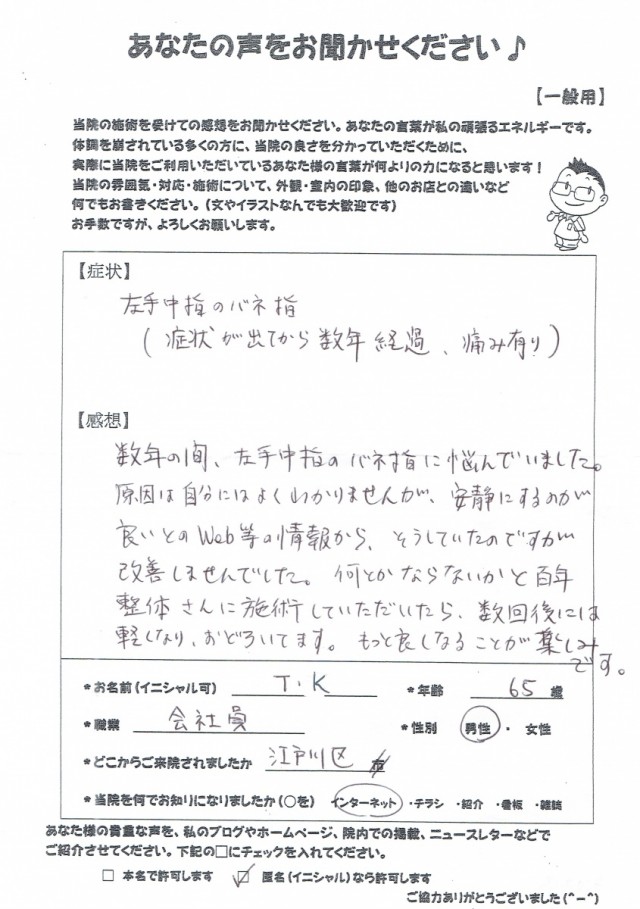 あなたの声をお聞かせください♪
【一般用】
当院の施術を受けての感想をお聞かせください。あなたの言葉が私の頑張るエネルギーです。
体調を崩されている多くの方に、当院の良さを分かっていただくために、
実際に当院をご利用いただいているあなた様の言葉が何よりの力になると思います！
当院の雰囲気・対応・施術について、外観・室内の印象、他のお店との違いなど
何でもお書きください。（文やイラストなんでも大歓迎です）
お手数ですが、よろしくお願いします。
【症状】
左手中指のバネ指
（症状が出てから数年経過、痛み有り）
【感想】
数年の間、左手中指のバネ指に悩んでいました。
原因は自分にはよくわかりませんが、安静にするのが
良いとのWeb等の情報から、そうしていたのですが
改善しませんでした。何とかならないかと百年
整体さんに施術していただいたら、数回後には
軽くなり、おどろいてます。もっと良くなることが楽しみ
です。
*お名前（イニシャル可） T.K *年齢 65 歳
*職業 会社員 *性別 男性 ・ 女性
*どこからご来院されましたか 江戸川区
*当院を何でお知りになりましたか（○を） インターネット ・チラシ ・紹介 ・看板 ・雑誌
あなた様の貴重な声を、私のブログやホームページ、院内での掲載、ニュースレターなどで
ご紹介させてください。下記の□にチェックを入れてください。
□ 本名で許可します ☑ 匿名（イニシャル）なら許可します
ご協力ありがとうございました（^-^）